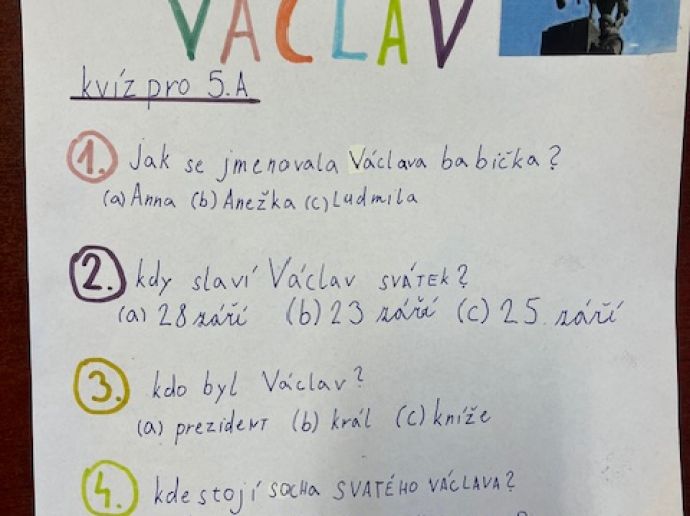 VÁCLAV
kvíz pro 5.A
1. Jak se jmenovala Václava babička?
(a) Anna (b) Anežka (c) Ludmila
2. kdy slaví Václav SVÁTEK?
(a) 28 září (b) 23 září (c) 25. září
3. kdo byl Václav?
(a) prezident (b) král (c) kníže
4. kde stojí SOCHA SVATÉHO VÁCLAVA?